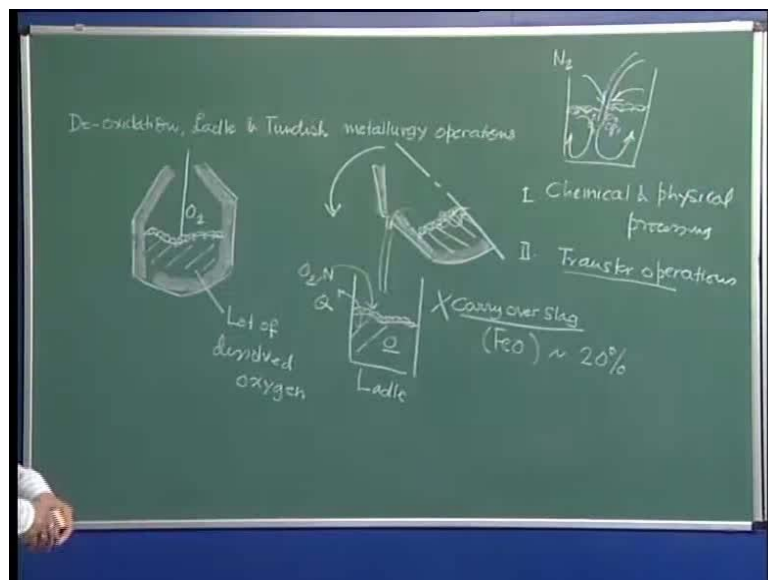 De-oxidation, Ladle & Tundish metallurgy operations
N2
O2
Lot of
dissolved
oxygen
O2, N
Q
O
Ladle
X Carry over slag
(FeO) ~ 20%
I. Chemical & physical
processing
II. Transfer operations